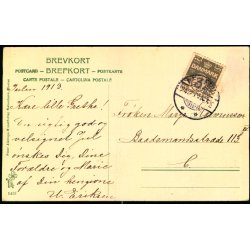 BREVKORT
POSTCARD — BREFKORT — POSTKARTE
CARTE POSTALE — CARTOLINA POSTALE
Julen 1913.
Kære lille Grethe!
En rigtig god og
velsignet Jul
ønskes Dig, Dine
Forældre og Marie
af din hengivne
U. Eriksen
Frøken Marye
Baadsmandsstræde
C